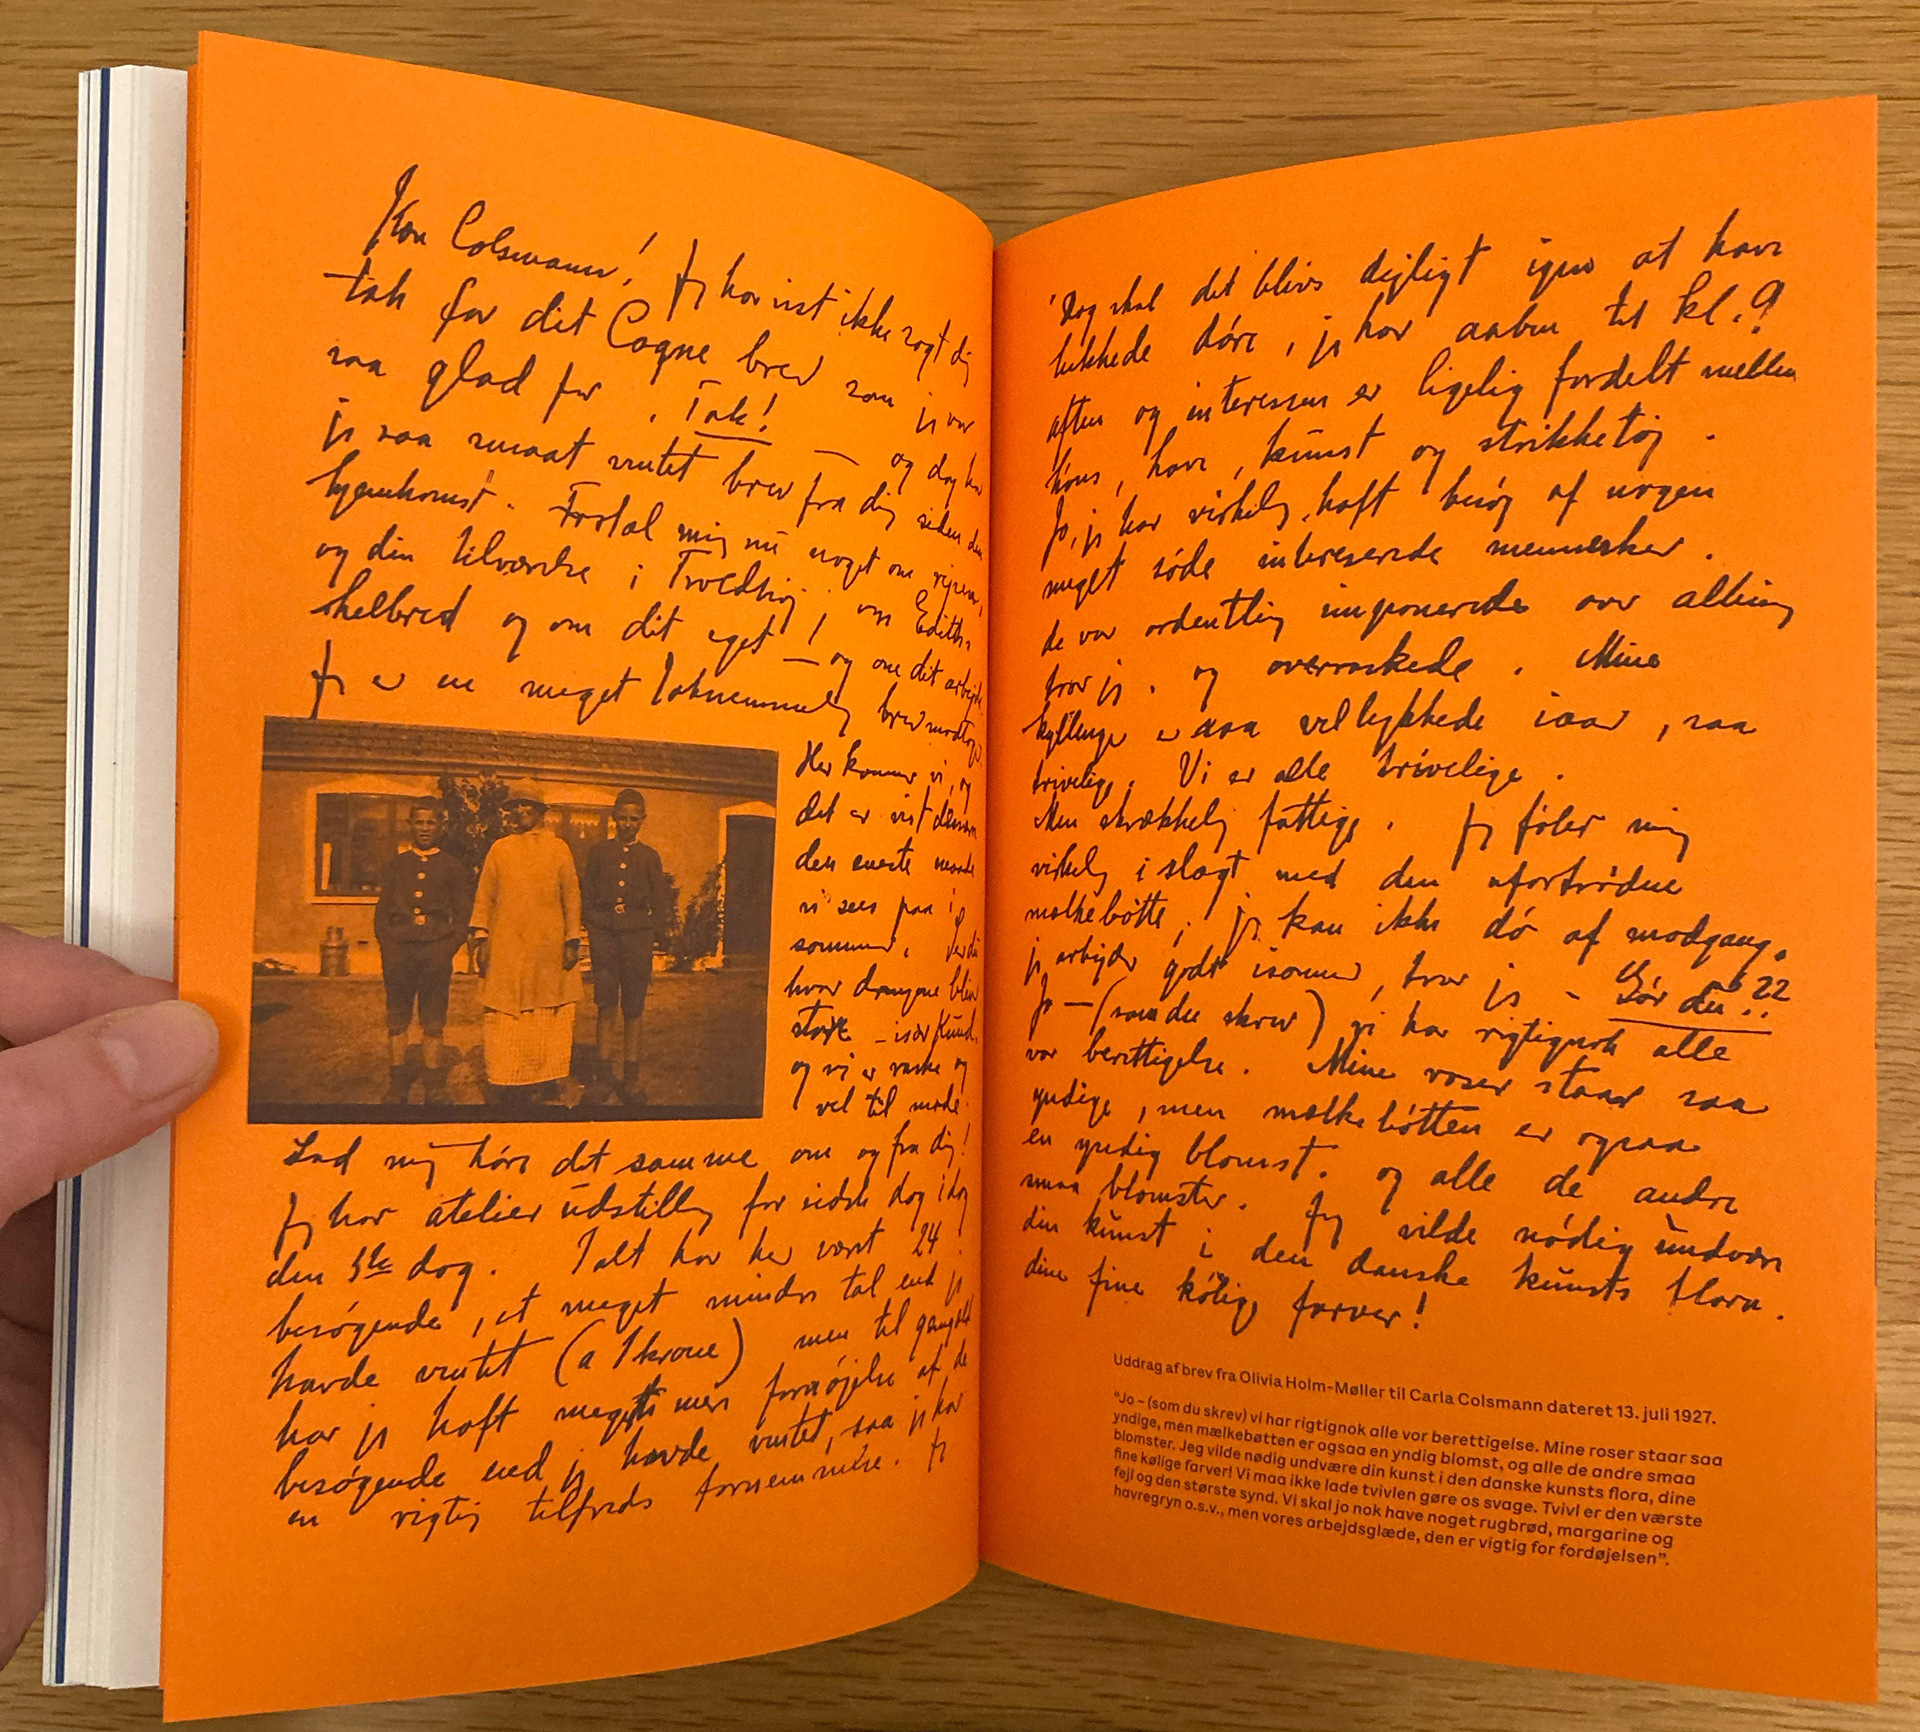 Kære Colsmann! Jeg har vist ikke sagt dig
tak for dit Cogne brev som jeg var
saa glad for. Tak! — og dog har
jeg saa smaat ventet brev fra dig siden din
hjemkomst. Fortal mig nu noget om rejsen,
og din tilværelse i Tvedhøj, om Ediths
helbred og om dit eget! — og om dit arbejde.
Jeg er en meget taknemmelig brevmodtager.
Her kommer vi, og
det er vist desværre
den eneste maade
vi sees paa i
sommer. Ser du
hvor drengene bliver
store – især Knud,
og vi er raske og
vel til mode.
Lad mig høre det samme om og fra dig!
Jeg har atelier udstilling for sidste dag idag
den 5te dag. Ialt har her været 24
besøgende, et meget mindre tal end jeg
havde ventet (a 1 krone) men til gengæld
har jeg haft meget mer fornøjelse af de
besøgende end jeg havde ventet, saa jeg har
en rigtig tilfreds fornemmelse. Jeg
Dog skal det blive dejligt igen at have
lukkede døre, jeg har aaben til kl. 9
aften og interessen er ligelig fordelt mellem
høns, have, kunst og strikketøj.
Jo, jeg har virkelig haft besøg af nogen
meget søde interesserede mennesker.
de var ordentlig imponerede over alting
tror jeg. og overraskede. Mine
kyllinger er saa vellykkede iaar, saa
trivelige. Vi er alle trivelige.
Men skrækkelig fattige. Jeg føler mig
virkelig i slægt med den ufortrødne
mælkebøtte, jeg kan ikke dø af modgang.
jeg arbejder godt isommer, tror jeg – Gør du??
Jo — (som du skrev) vi har rigtignok alle
vor berettigelse. Mine roser staar saa
yndige, men mælkebøtten er ogsaa
en yndig blomst. og alle de andre
smaa blomster. Jeg vilde nødig undvære
din kunst i den danske kunsts flora.
dine fine kølige farver!
Uddrag af brev fra Olivia Holm-Møller til Carla Colsmann dateret 13. juli 1927.
"Jo – (som du skrev) vi har rigtignok alle vor berettigelse. Mine roser staar saa
yndige, men mælkebøtten er ogsaa en yndig blomst, og alle de andre smaa
blomster. Jeg vilde nødig undvære din kunst i den danske kunsts flora, dine
fine kølige farver! Vi maa ikke lade tvivlen gøre os svage. Tvivl er den værste
fejl og den største synd. Vi skal jo nok have noget rugbrød, margarine og
havregryn o.s.v., men vores arbejdsglæde, den er vigtig for fordøjelsen".